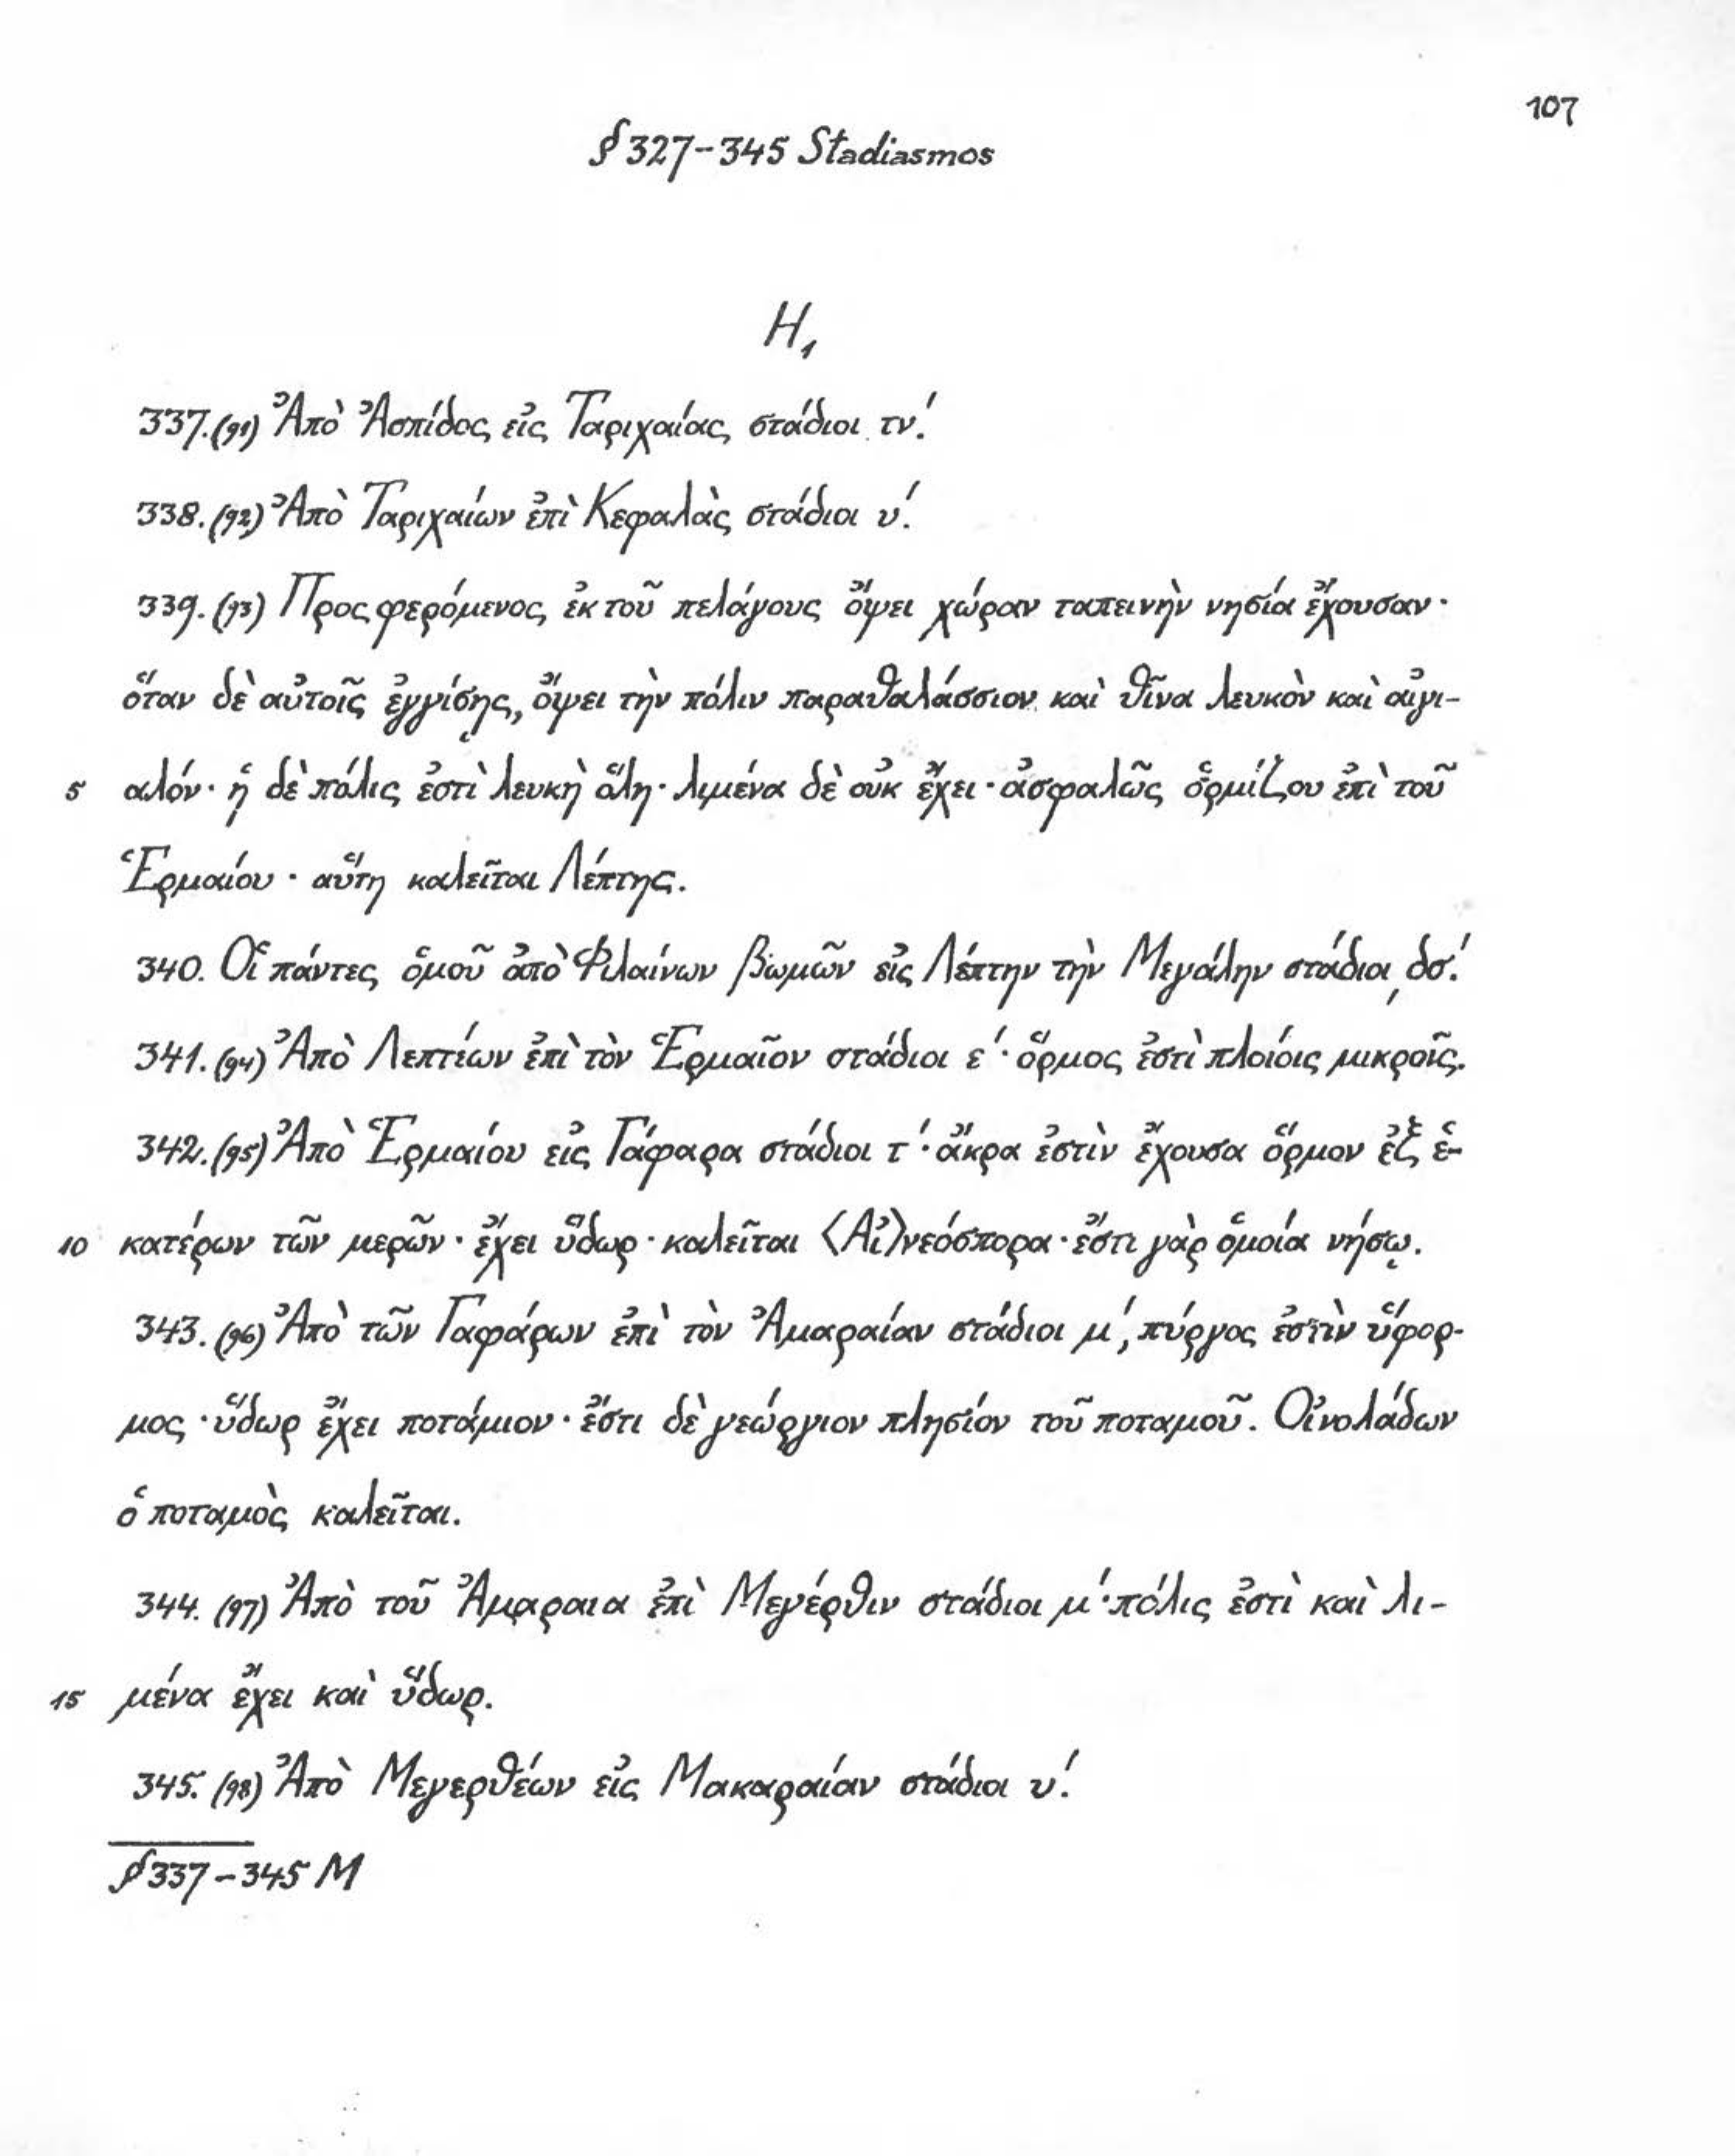 107
§ 327-345 Stadiasmos
H₁
337. (91) Ἀπὸ Ἀσπίδος εἰς Ταριχαίας στάδιοι τν´.
338. (92) Ἀπὸ Ταριχαίων ἐπὶ Κεφαλὰς στάδιοι υ´.
339. (93) Προςφερόμενος ἐκ τοῦ πελάγους ὄψει χώραν ταπεινὴν νησία ἔχουσαν·
ὅταν δὲ αὐτοῖς ἐγγίσῃς, ὄψει τὴν πόλιν παραθαλάσσιον καὶ θῖνα λευκὸν καὶ αἰγι-
5 αλόν· ἡ δὲ πόλις ἐστὶ λευκὴ ὅλη· λιμένα δὲ οὐκ ἔχει· ἀσφαλῶς ὁρμίζου ἐπὶ τοῦ
Ἑρμαίου· αὕτη καλεῖται Λέπτης.
340. Οἱ πάντες ὁμοῦ ἀπὸ Φιλαίνων βωμῶν εἰς Λέπτην τὴν Μεγάλην στάδιοι ͵δσ´.
341. (94) Ἀπὸ Λεπτέων ἐπὶ τὸν Ἑρμαῖον στάδιοι ε´· ὅρμος ἐστὶ πλοίοις μικροῖς.
342. (95) Ἀπὸ Ἑρμαίου εἰς Γάφαρα στάδιοι τ´· ἄκρα ἐστὶν ἔχουσα ὅρμον ἐξ ἑ-
10 κατέρων τῶν μερῶν· ἔχει ὕδωρ· καλεῖται ⟨Αἰ⟩νεόσπορα· ἔστι γὰρ ὁμοία νήσῳ.
343. (96) Ἀπὸ τῶν Γαφάρων ἐπὶ τὸν Ἀμαραίαν στάδιοι μ´, πύργος ἐστὶν ὕφορ-
μος· ὕδωρ ἔχει ποτάμιον· ἔστι δὲ γεώργιον πλησίον τοῦ ποταμοῦ. Οἰνολάδων
ὁ ποταμὸς καλεῖται.
344. (97) Ἀπὸ τοῦ Ἀμαραια ἐπὶ Μεγέρθιν στάδιοι μ´· πόλις ἐστὶ καὶ λι-
15 μένα ἔχει καὶ ὕδωρ.
345. (98) Ἀπὸ Μεγερθέων εἰς Μακαραίαν στάδιοι υ´.
§ 337-345 M